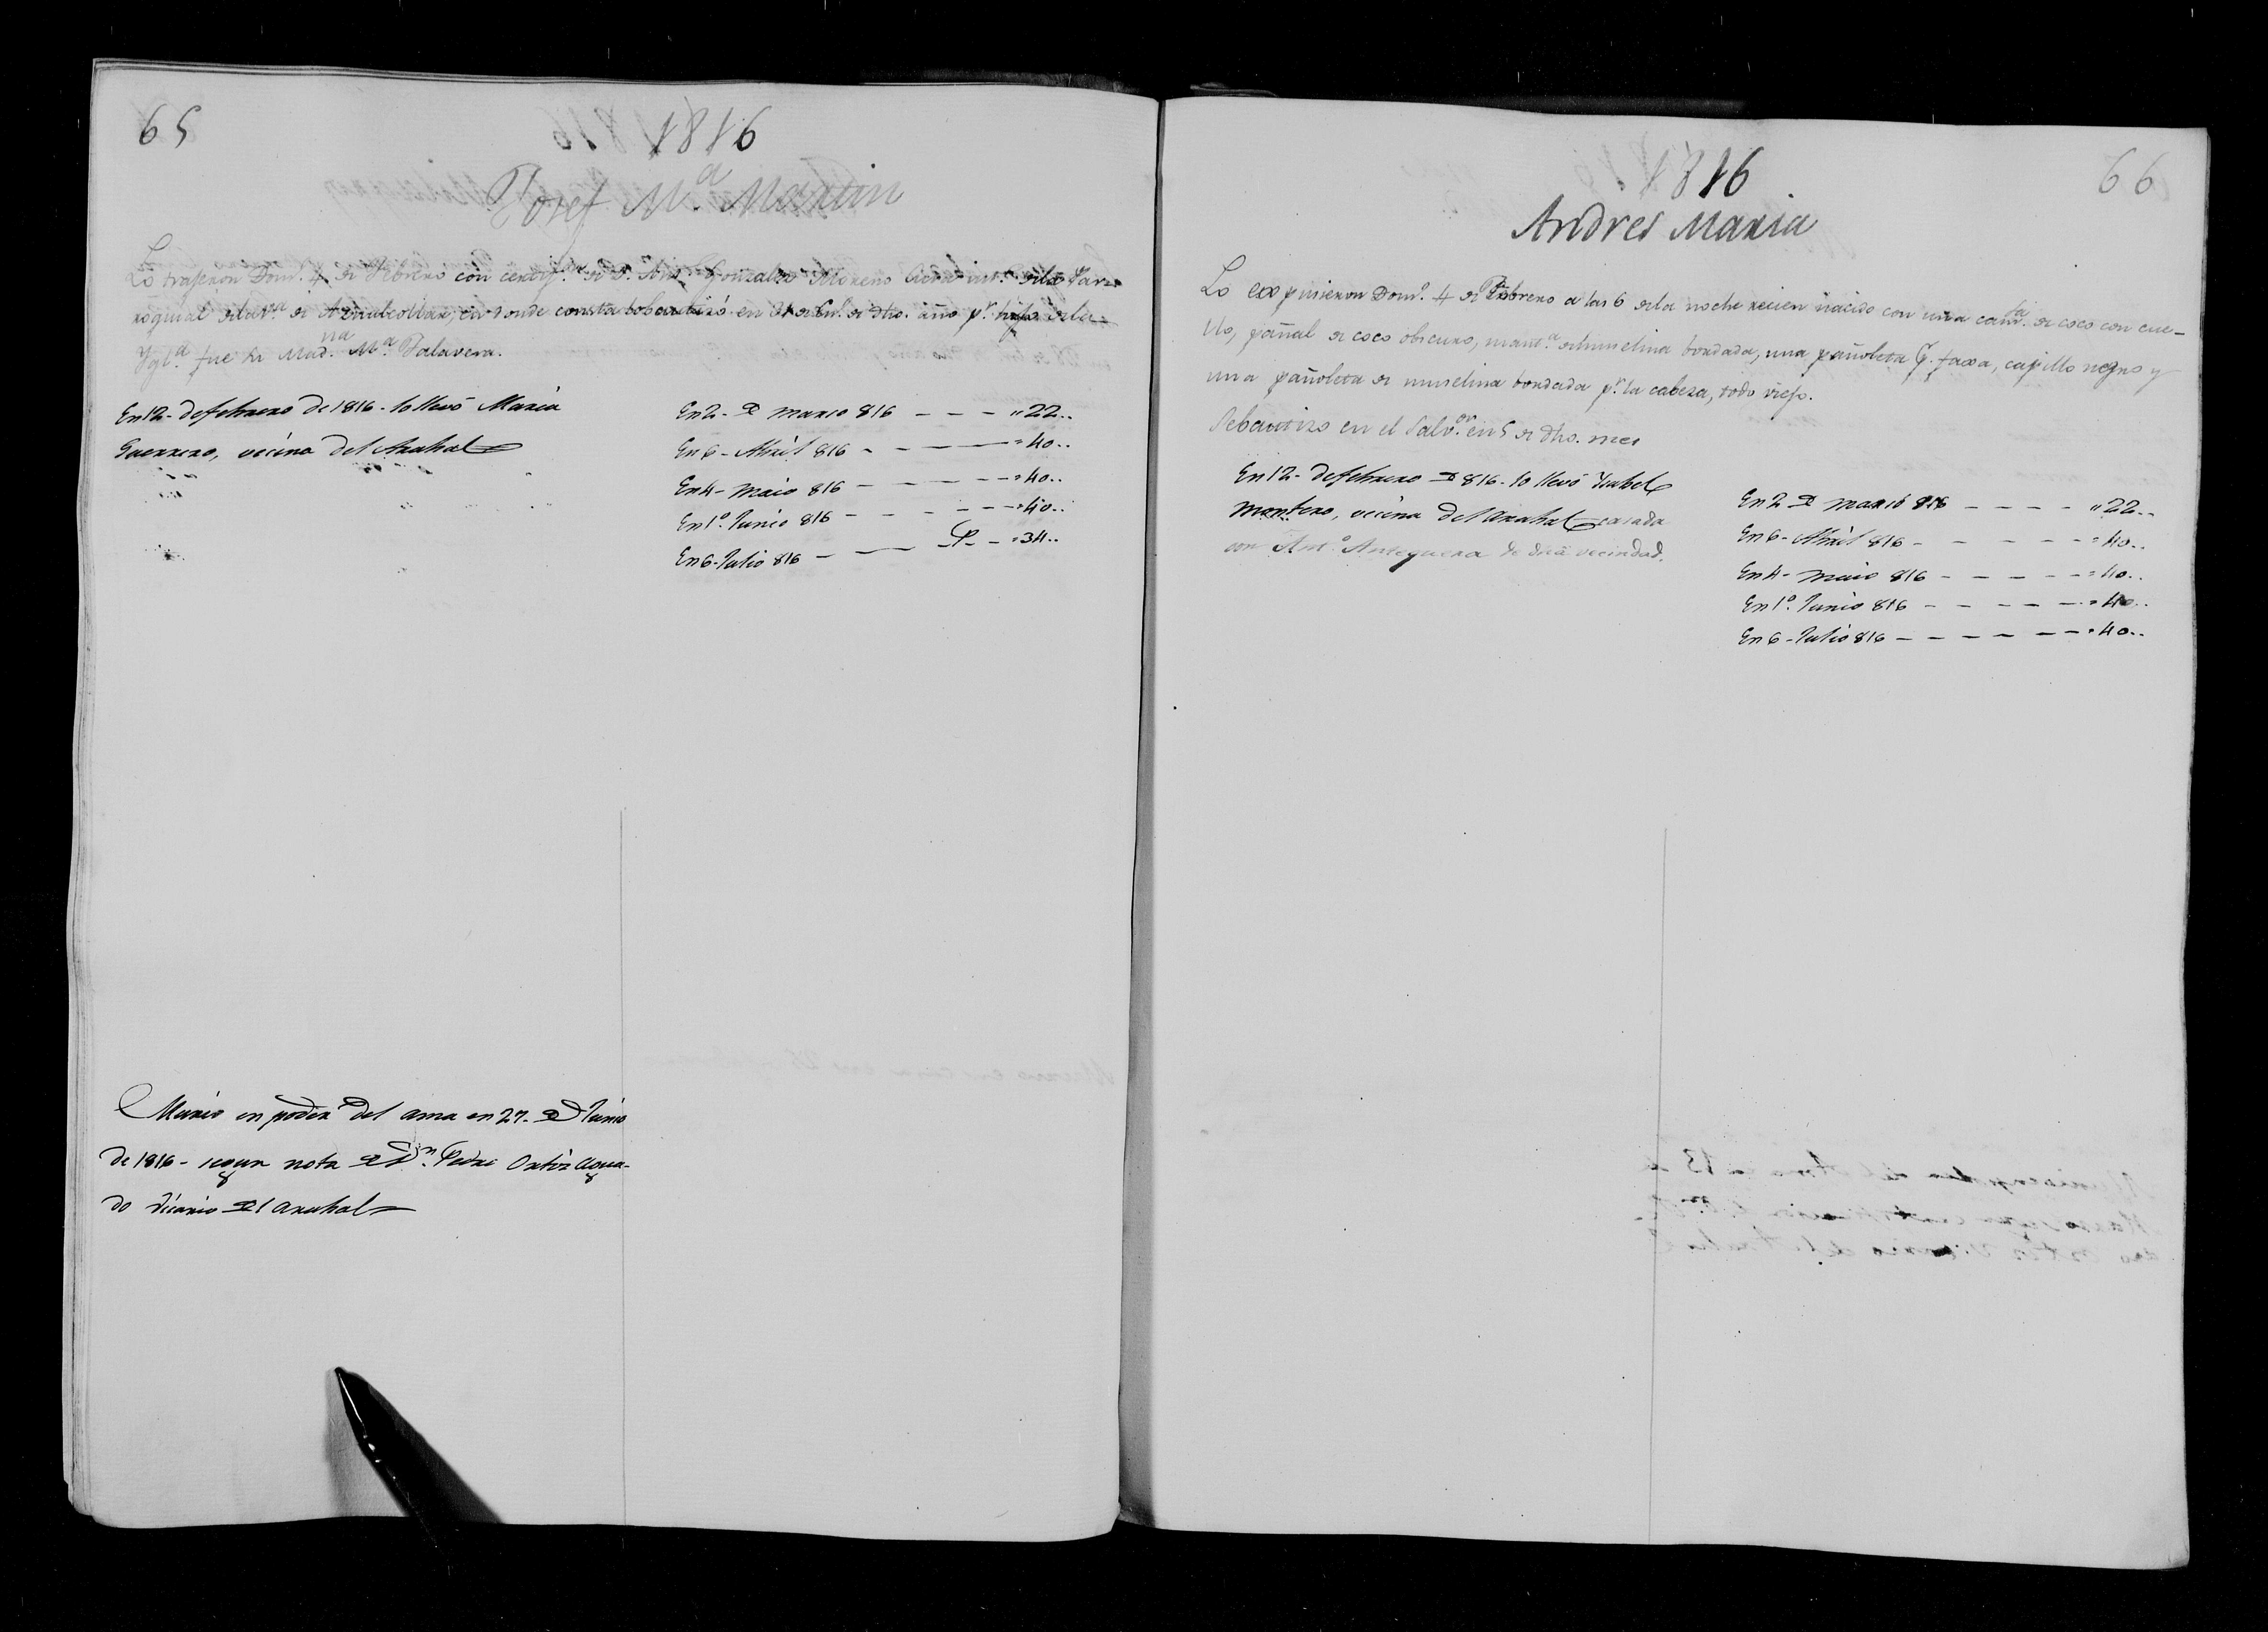 65
1816
Josef Mª Martin
Lo trageron Domº. 4 de Febrero con certifºⁿ de Dⁿ. Antº Gonzalez Moreno Cura de la Par-
roquial de la vª de Aznalcollar, en donde consta bobautizó en de Enº. de dho. año pʳ. hijo de la
Yglª fue su Madⁿᵃ Mª. Talavera.
En 12- de febrero de 1816- lo llevó Maria
Guerrero, vecina del Arahal
En 2- de marzo 816 - - - " 22..
En 6- Abril 816 - - - = 40..
En 4- maio 816 - - - - = 40..
En 1º. Junio 816 - - - - = 40..
En 6- Julio 816 - - P- - = 34..
Murio en poder del ama en 27- de Junio
de 1816- segun nota de Dⁿ. Pedro Ortiz Agua-
do Vicario del Arahal
66
1816
Andres Maria
Lo expusieron Domº. 4 de Febrero a las 6 de la noche recien nacido con una camᵗᵃ. de coco con cue-
llo, pañal de coco obscuro, mantª de muselina bordada, una pañoleta pʳ. faxa, capillo negro y
una pañoleta de muselina bordada pʳ. la cabeza, todo viejo.
Se bautizo en el Salvᵒʳ. en 5 de dho. mes
En 12- de febrero de 816- lo llevó Ysabel
Montero, vecina del Arahal casada
con Antº Antequera de dha vecindad.
En 2 de marzo 816 - - - - " 22..
En 6- Abril 816 - - - - - = 40..
En 4- maio 816 - - - - - = 40..
En 1º. Junio 816 - - - - - = 40..
En 6- Julio 816 - - - - - = 40..